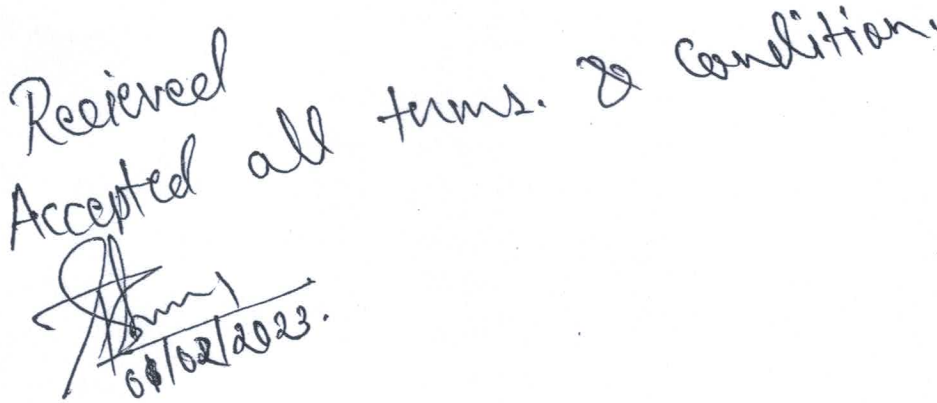 Recieved
Accepted all terms. & Condition.
01/02/2023.